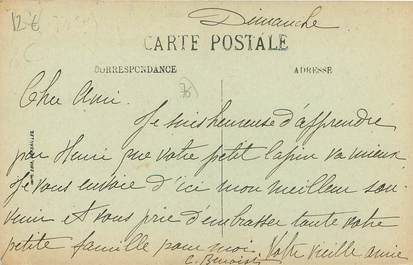 12-6
Dimanche
CARTE POSTALE
CORRESPONDANCE
ADRESSE
Cher Ami.
Je suis heureuse d'apprendre
par Henri que votre petit lapin va mieux
Je vous envoie d'ici mon meilleur sou-
venir et vous prie d'embrasser toute votre
petite famille pour moi. Votre vieille amie
C. Benoist